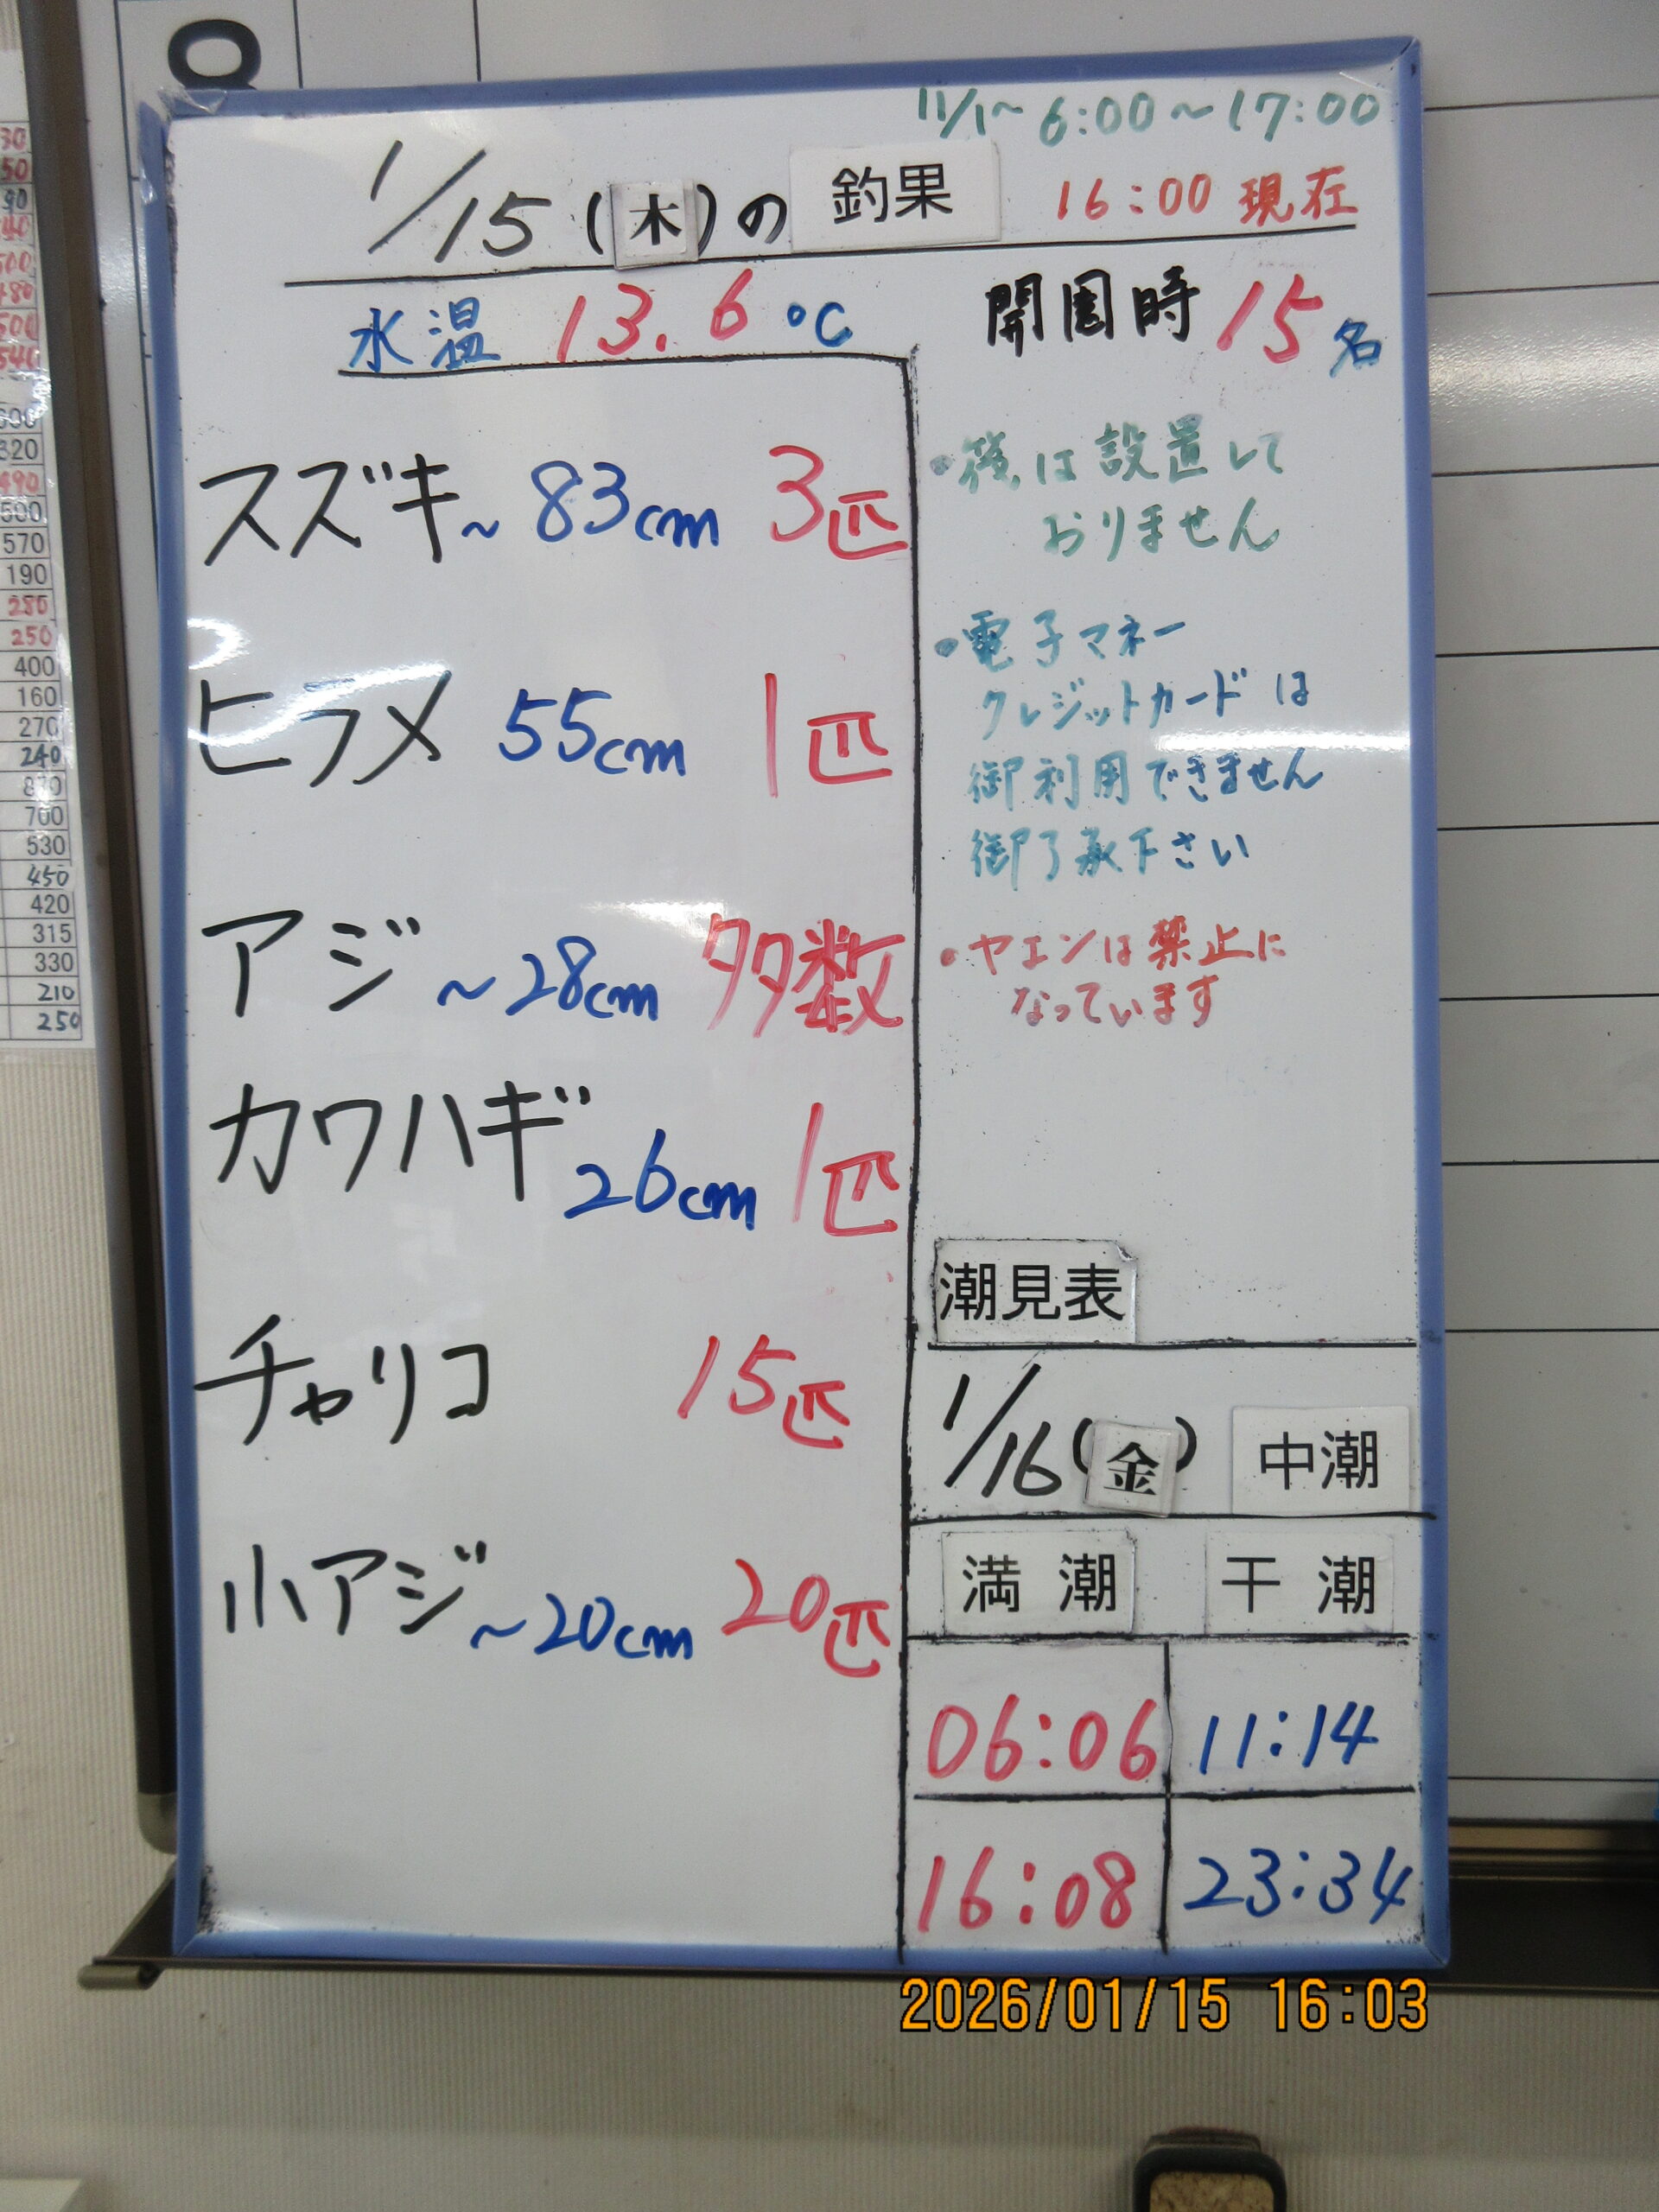 11/1～ 6:00～17:00
1/15(木)の 釣果 16:00 現在
水温 13.6℃ 開園時 15名
スズキ～83cm 3匹
ヒラメ 55cm 1匹
アジ～28cm 多数
カワハギ 26cm 1匹
チャリコ 15匹
小アジ～20cm 20匹
は設置して
おりません
・電子マネー
クレジットカードは
御利用できません
御了承下さい
・ヤエンは禁止に
なっています
潮見表
1/16(金) 中潮
満潮 干潮
06:06 11:14
16:08 23:34
2026/01/15 16:03
570
190
280
250
400
160
270
240
700
530
450
420
315
330
210
250